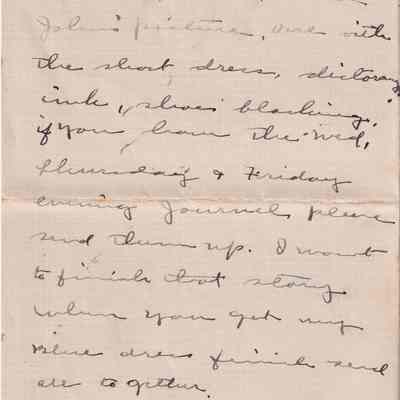 John's picture, one with
the short dress, dictonary,
ink, shoe blacking,
if you have the Wed,
Thursday & Friday
evening Journal please
send them up. I want
to finish that story
when you get my
blue dress finish send
all together.